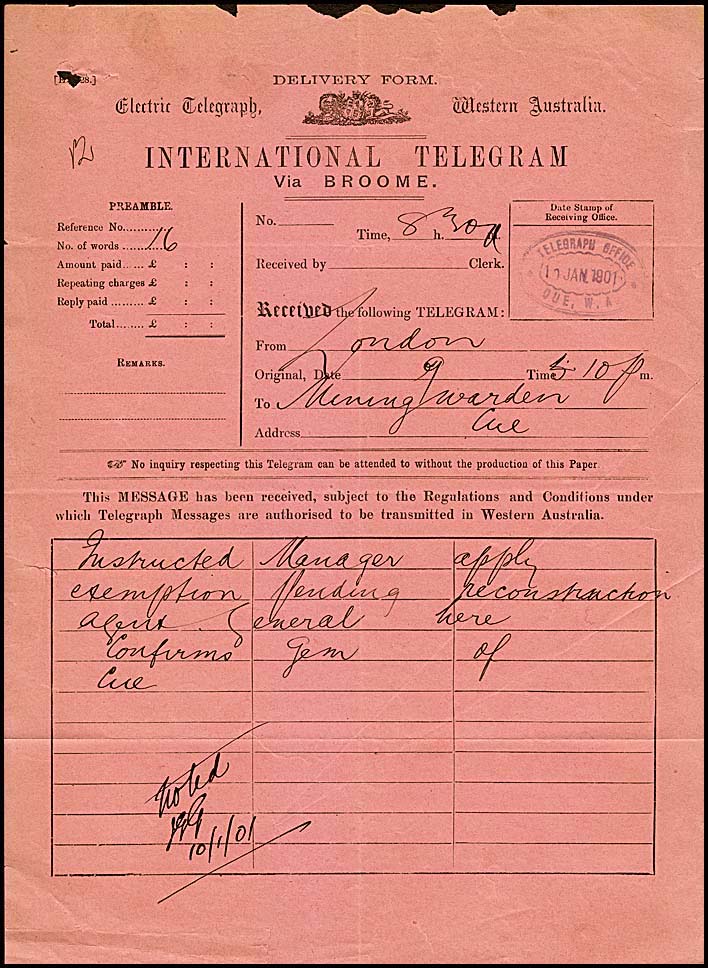 DELIVERY FORM.
Electric Telegraph, Western Australia.
12
INTERNATIONAL TELEGRAM
Via BROOME.
PREAMBLE.
Reference No.
No. of words 16
Amount paid £ : :
Repeating charges £ : :
Reply paid £ : :
Total £ : :
REMARKS.
No.
Time, 8 h. 30 a m.
Received by Clerk.
Date Stamp of
Receiving Office.
TELEGRAPH OFFICE
JAN. 1901
CUE, W.A.
Received the following TELEGRAM:
From London
Original, Date 9 Time 5 10 p m.
To Mining warden
Address Cue
No inquiry respecting this Telegram can be attended to without the production of this Paper.
This MESSAGE has been received, subject to the Regulations and Conditions under
which Telegraph Messages are authorised to be transmitted in Western Australia.
Instructed Manager apply
exemption Pending reconstruction
agent General here
Confirms Gem of
Cue
Noted
10/1/01